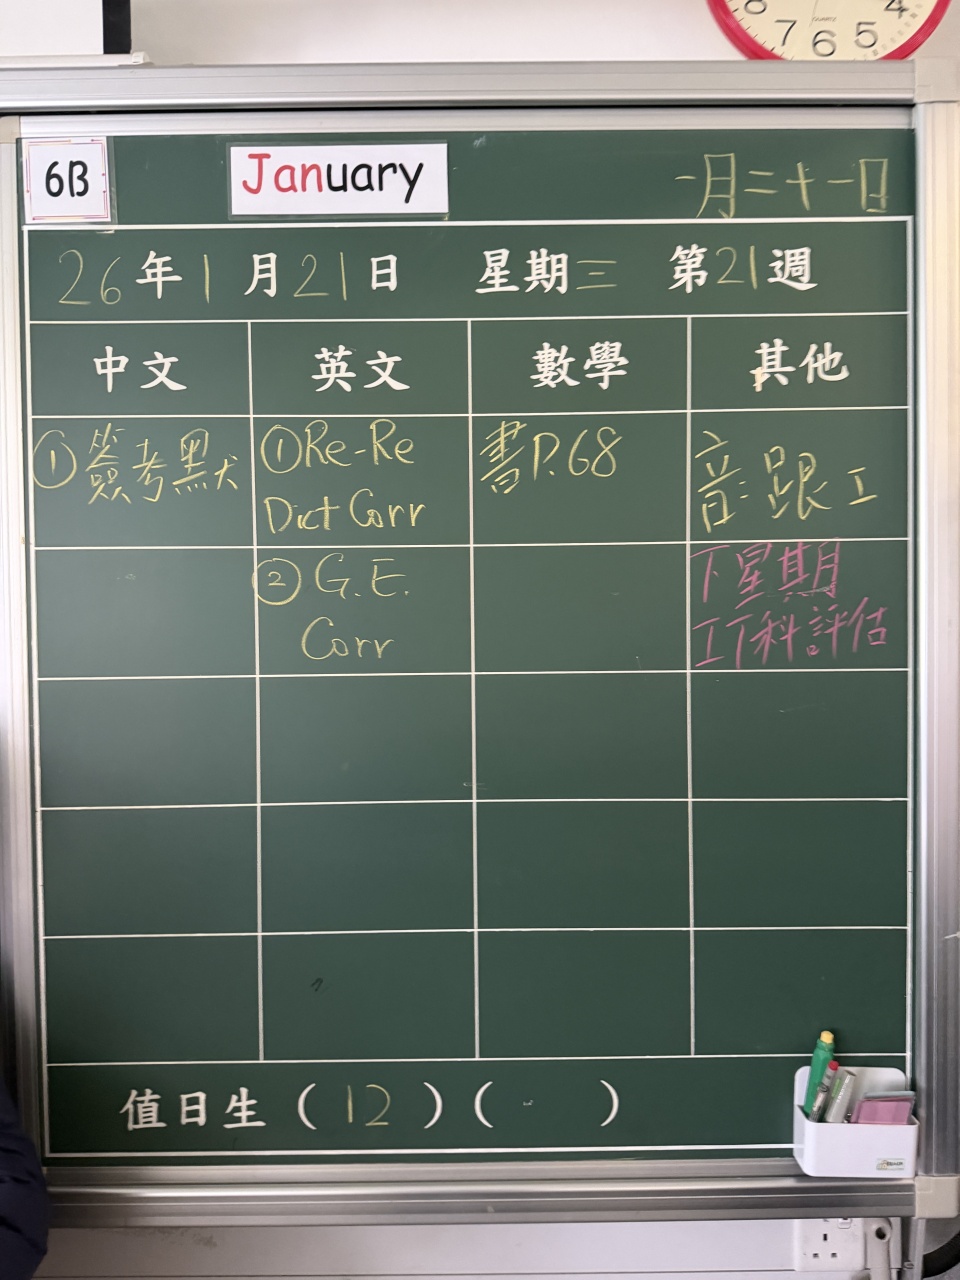 8 7 6 5 4
QUARTZ
6B
January
一月二十一日
26年1月21日 星期三 第21週
中文 英文 數學 其他
①簽考默
①Re-Re
Dict Corr
書P.68
音:跟工
②G.E.
Corr
下星期
IT科評估
值日生(12)( )